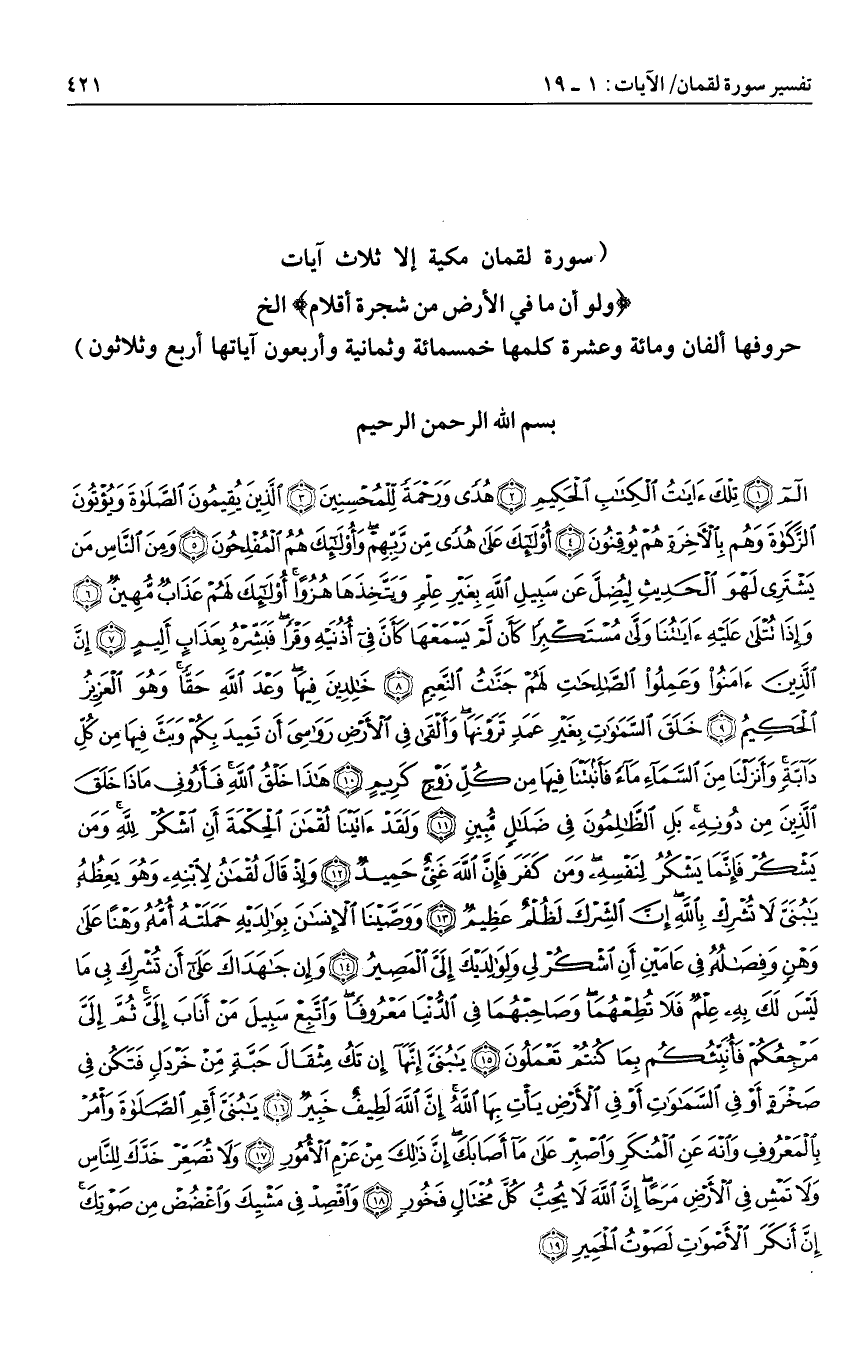 تفسير سورة لقمان/ الآيات: ١ ـ ١٩ ٤٢١
(سورة لقمان مكية إلا ثلاث آيات
﴿ولو أن ما في الأرض من شجرة أقلام﴾ الخ
حروفها ألفان ومائة وعشرة كلمها خمسمائة وثمانية وأربعون آياتها أربع وثلاثون)
بسم الله الرحمن الرحيم
الٓمٓ ﴿١﴾ تِلْكَ ءَايَٰتُ ٱلْكِتَٰبِ ٱلْحَكِيمِ ﴿٢﴾ هُدًى وَرَحْمَةً لِّلْمُحْسِنِينَ ﴿٣﴾ ٱلَّذِينَ يُقِيمُونَ ٱلصَّلَوٰةَ وَيُؤْتُونَ
ٱلزَّكَوٰةَ وَهُم بِٱلْأَخِرَةِ هُمْ يُوقِنُونَ ﴿٤﴾ أُوْلَٰٓئِكَ عَلَىٰ هُدًى مِّن رَّبِّهِمْۖ وَأُوْلَٰٓئِكَ هُمُ ٱلْمُفْلِحُونَ ﴿٥﴾ وَمِنَ ٱلنَّاسِ مَن
يَشْتَرِى لَهْوَ ٱلْحَدِيثِ لِيُضِلَّ عَن سَبِيلِ ٱللَّهِ بِغَيْرِ عِلْمٍ وَيَتَّخِذَهَا هُزُوًاۚ أُوْلَٰٓئِكَ لَهُمْ عَذَابٌ مُّهِينٌ ﴿٦﴾
وَإِذَا تُتْلَىٰ عَلَيْهِ ءَايَٰتُنَا وَلَّىٰ مُسْتَكْبِرًا كَأَن لَّمْ يَسْمَعْهَا كَأَنَّ فِىٓ أُذُنَيْهِ وَقْرًاۖ فَبَشِّرْهُ بِعَذَابٍ أَلِيمٍ ﴿٧﴾ إِنَّ
ٱلَّذِينَ ءَامَنُوا۟ وَعَمِلُوا۟ ٱلصَّٰلِحَٰتِ لَهُمْ جَنَّٰتُ ٱلنَّعِيمِ ﴿٨﴾ خَٰلِدِينَ فِيهَاۖ وَعْدَ ٱللَّهِ حَقًّاۚ وَهُوَ ٱلْعَزِيزُ
ٱلْحَكِيمُ ﴿٩﴾ خَلَقَ ٱلسَّمَٰوَٰتِ بِغَيْرِ عَمَدٍ تَرَوْنَهَاۖ وَأَلْقَىٰ فِى ٱلْأَرْضِ رَوَٰسِىَ أَن تَمِيدَ بِكُمْ وَبَثَّ فِيهَا مِن كُلِّ
دَآبَّةٍۚ وَأَنزَلْنَا مِنَ ٱلسَّمَآءِ مَآءً فَأَنۢبَتْنَا فِيهَا مِن كُلِّ زَوْجٍ كَرِيمٍ ﴿١٠﴾ هَٰذَا خَلْقُ ٱللَّهِ فَأَرُونِى مَاذَا خَلَقَ
ٱلَّذِينَ مِن دُونِهِۦۚ بَلِ ٱلظَّٰلِمُونَ فِى ضَلَٰلٍ مُّبِينٍ ﴿١١﴾ وَلَقَدْ ءَاتَيْنَا لُقْمَٰنَ ٱلْحِكْمَةَ أَنِ ٱشْكُرْ لِلَّهِۚ وَمَن
يَشْكُرْ فَإِنَّمَا يَشْكُرُ لِنَفْسِهِۦۖ وَمَن كَفَرَ فَإِنَّ ٱللَّهَ غَنِىٌّ حَمِيدٌ ﴿١٢﴾ وَإِذْ قَالَ لُقْمَٰنُ لِٱبْنِهِۦ وَهُوَ يَعِظُهُۥ
يَٰبُنَىَّ لَا تُشْرِكْ بِٱللَّهِۖ إِنَّ ٱلشِّرْكَ لَظُلْمٌ عَظِيمٌ ﴿١٣﴾ وَوَصَّيْنَا ٱلْإِنسَٰنَ بِوَٰلِدَيْهِ حَمَلَتْهُ أُمُّهُۥ وَهْنًا عَلَىٰ
وَهْنٍ وَفِصَٰلُهُۥ فِى عَامَيْنِ أَنِ ٱشْكُرْ لِى وَلِوَٰلِدَيْكَ إِلَىَّ ٱلْمَصِيرُ ﴿١٤﴾ وَإِن جَٰهَدَاكَ عَلَىٰٓ أَن تُشْرِكَ بِى مَا
لَيْسَ لَكَ بِهِۦ عِلْمٌ فَلَا تُطِعْهُمَاۖ وَصَاحِبْهُمَا فِى ٱلدُّنْيَا مَعْرُوفًاۖ وَٱتَّبِعْ سَبِيلَ مَنْ أَنَابَ إِلَىَّۚ ثُمَّ إِلَىَّ
مَرْجِعُكُمْ فَأُنَبِّئُكُم بِمَا كُنتُمْ تَعْمَلُونَ ﴿١٥﴾ يَٰبُنَىَّ إِنَّهَآ إِن تَكُ مِثْقَالَ حَبَّةٍ مِّنْ خَرْدَلٍ فَتَكُن فِى
صَخْرَةٍ أَوْ فِى ٱلسَّمَٰوَٰتِ أَوْ فِى ٱلْأَرْضِ يَأْتِ بِهَا ٱللَّهُۚ إِنَّ ٱللَّهَ لَطِيفٌ خَبِيرٌ ﴿١٦﴾ يَٰبُنَىَّ أَقِمِ ٱلصَّلَوٰةَ وَأْمُرْ
بِٱلْمَعْرُوفِ وَٱنْهَ عَنِ ٱلْمُنكَرِ وَٱصْبِرْ عَلَىٰ مَآ أَصَابَكَۖ إِنَّ ذَٰلِكَ مِنْ عَزْمِ ٱلْأُمُورِ ﴿١٧﴾ وَلَا تُصَعِّرْ خَدَّكَ لِلنَّاسِ
وَلَا تَمْشِ فِى ٱلْأَرْضِ مَرَحًاۖ إِنَّ ٱللَّهَ لَا يُحِبُّ كُلَّ مُخْتَالٍ فَخُورٍ ﴿١٨﴾ وَٱقْصِدْ فِى مَشْيِكَ وَٱغْضُضْ مِن صَوْتِكَۚ
إِنَّ أَنكَرَ ٱلْأَصْوَٰتِ لَصَوْتُ ٱلْحَمِيرِ ﴿١٩﴾